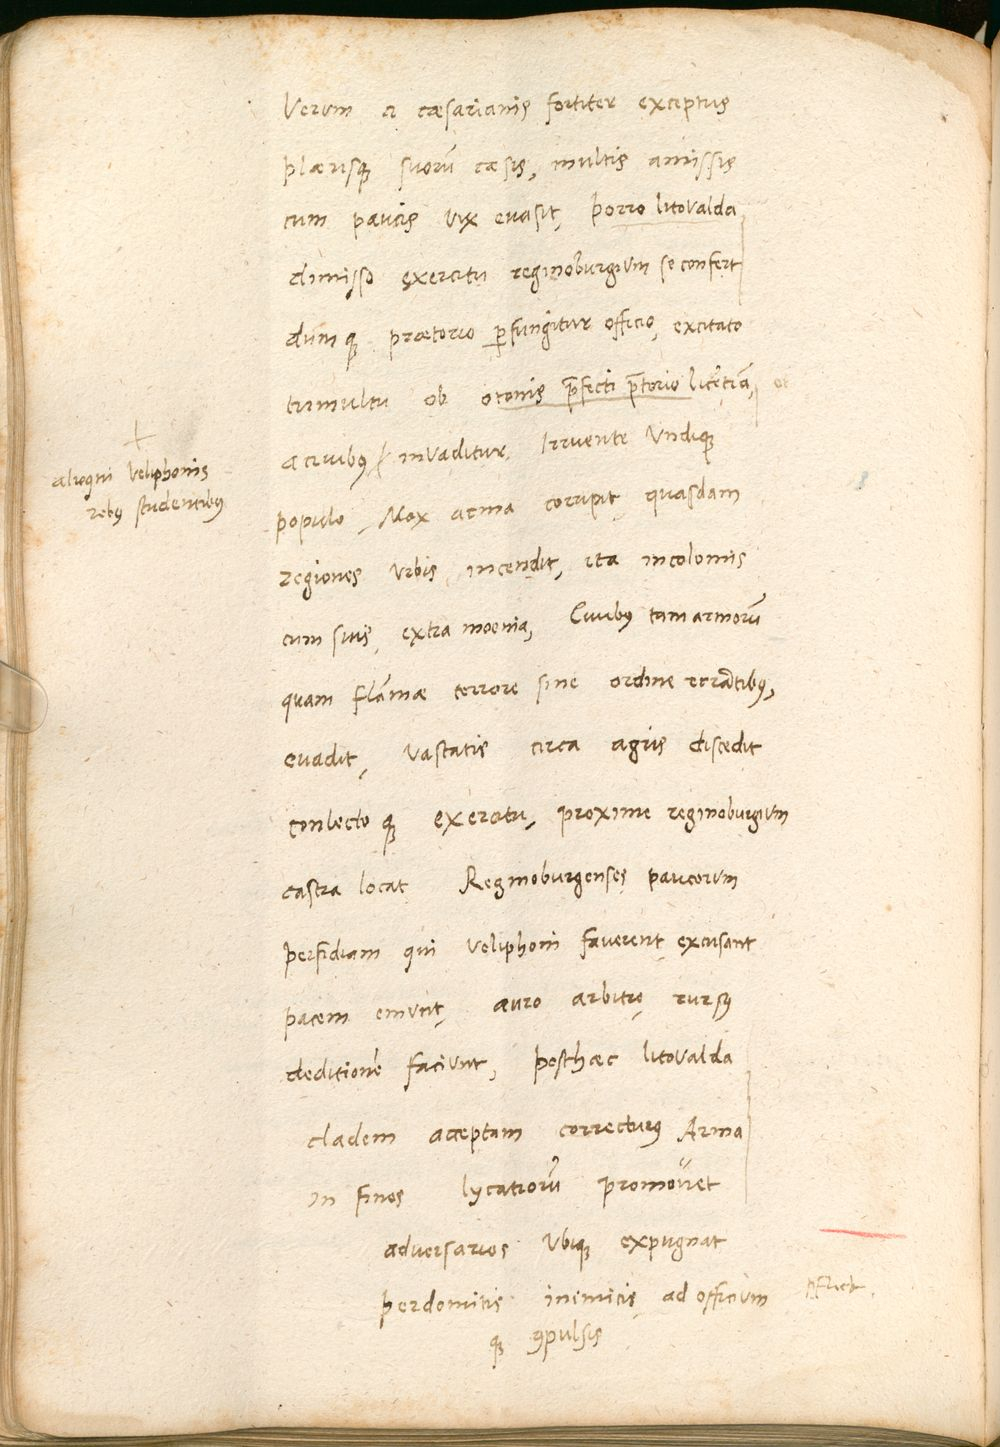 Verum a cæsarianis fortiter exceptus
plærisq; suorū cæsis, multis amissis
cum paucis vix evasit, porro litovalda
dimisso exercitu reginoburgium se confert
dum q; prætorio p̱fungitur officio, excitato
tumultu ob otonis p̄fecti p̄torio licētiā, et
a civibus invaditur, Irruente Undiq;
+
alioqni veliphonis
rebus studentibus
populo, Mox arma corripit, quasdam
regiones urbis, incendit, ita incolomis
cum suis, extra moenia, Civibus tam armorū
quam flāmæ terrore sine ordine errātibus,
evadit, vastatis circa agris discedit
conlecto q; exercitu, proxime reginoburgium
castra locat Reginoburgenses paucorum
perfidiam qui veliphoni faverent excusant
pacem emunt, auro arbitrę rursus
deditionē faciunt, posthæc litovalda
cladem acceptam correcturus Arma
in fines lycatiorū promovet
adversarios Ubiq; expugnat
perdomitis inimicis, ad officium
q; 9pulsis